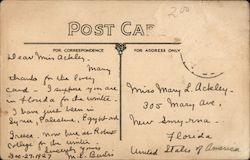 2.00
POST CAR
FOR CORRESPONDENCE
FOR ADDRESS ONLY
Dear Miss Ackley.
Many
thanks for the lovely
card - I suppose you are
in Florida for the winter.
I have just been in
Syria, Palestine, Egypt and
Greece. Now here at Robert
College for the winter.
Sincerely yours
Dec-27-1927
Miss Mary L. Ackley.
305 Mary Ave,
New Smyrna.
Florida
United States of America